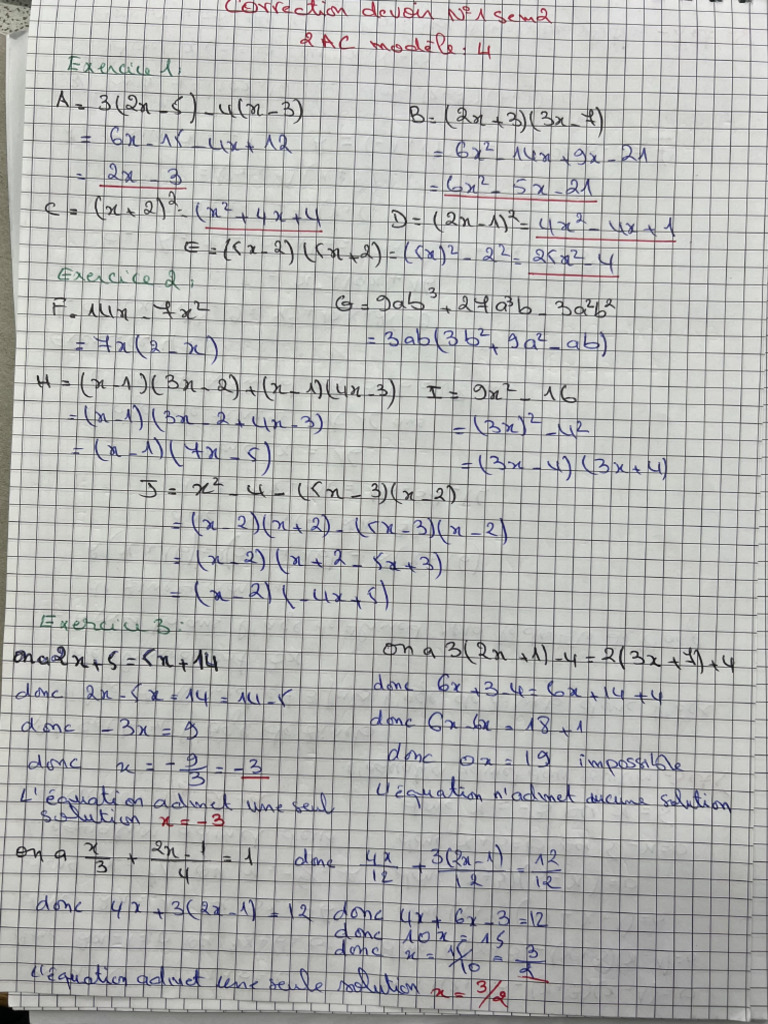 Correction devoir N°1 sem2
2AC modèle: 4
Exercice 1:
A = 3(2x-5)-4(x-3)
= 6x-15-4x+12
= 2x-3
B = (2x+3)(3x-7)
= 6x²-14x+9x-21
= 6x²-5x-21
C = (x+2)² = (x²+4x+4
D = (2x-1)² = 4x²-4x+1
E = (5x-2)(5x+2) = (5x)²-2² = 25x²-4
Exercice 2:
F = 14x-7x²
= 7x(2-x)
G = 9ab³+27a³b-3a²b²
= 3ab(3b²+9a²-ab)
H = (x-1)(3x-2)+(x-1)(4x-3)
= (x-1)(3x-2+4x-3)
= (x-1)(7x-5)
I = 9x²-16
= (3x)²-4²
= (3x-4)(3x+4)
J = x²-4-(5x-3)(x-2)
= (x-2)(x+2)-(5x-3)(x-2)
= (x-2)(x+2-5x+3)
= (x-2)(-4x+5)
Exercice 3:
on a 2x+5=5x+14
donc 2x-5x=14=14-5
donc -3x=9
donc x=-9/3=-3
L'équation admet une seul
solution x=-3
on a 3(2x+1)-4=2(3x+7)+4
donc 6x+3-4=6x+14+4
donc 6x-6x=18+1
donc 0x=19 impossible
L'équation n'admet aucune solution
on a x/3 + 2x-1/4 = 1 donc 4x/12 + 3(2x-1)/12 = 12/12
donc 4x+3(2x-1)=12 donc 4x+6x-3=12
donc 10x=15
donc x=15/10=3/2
L'équation admet une seule solution x=3/2